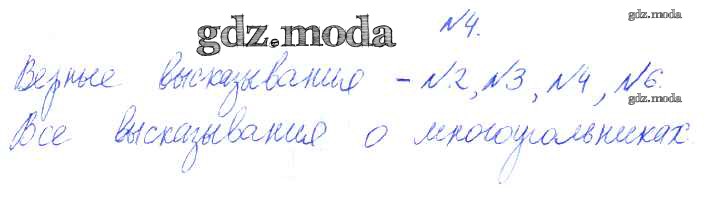 №4.
gdz.moda
gdz.moda
Верные высказывания – №2, №3, №4, №6.
gdz.moda
Все высказывания о многоугольниках.